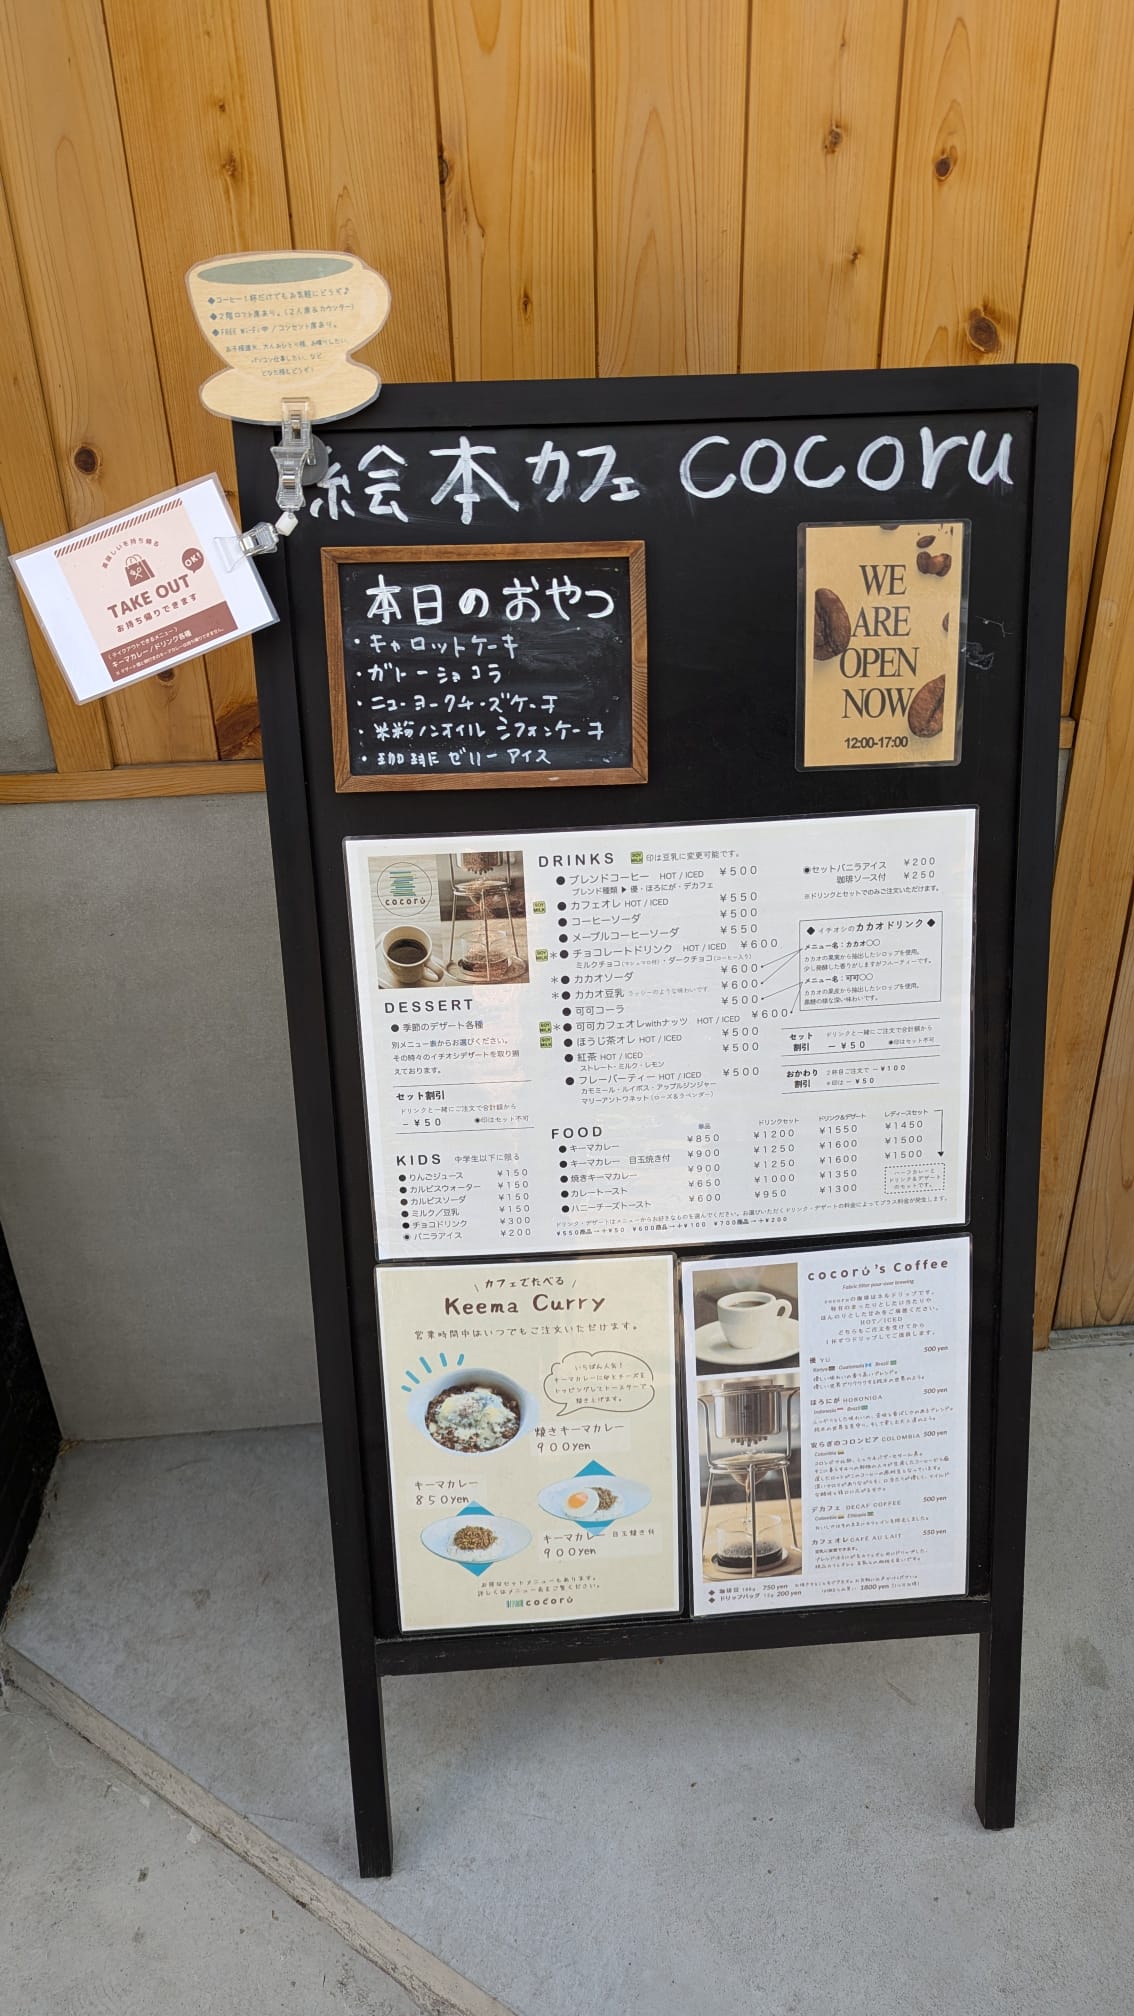 ◆コーヒー1杯だけでもお気軽にどうぞ♪
◆2階ロフト席あり。(2人席&カウンター)
◆FREE Wi-Fi中 / コンセント席あり。
お子様連れ、大人おひとり様、お喋りしたい、
パソコン仕事したい、など
どなた様もどうぞ!
絵本カフェ cocoru
美味しいを持ち帰る
OK!
TAKE OUT
お持ち帰りできます
(テイクアウトできるメニュー)
キーマカレー/ドリンク各種
本日のおやつ
・キャロットケーキ
・ガトーショコラ
・ニューヨークチーズケーキ
・米粉ノンオイルシフォンケーキ
・珈琲ゼリーアイス
WE
ARE
OPEN
NOW
12:00-17:00
cocoru
DRINKS
SOY MILK 印は豆乳に変更可能です。
●ブレンドコーヒー HOT / ICED ¥500
ブレンド種類 ▶ 優・ほろにが・デカフェ
SOY MILK ●カフェオレ HOT / ICED ¥550
●コーヒーソーダ ¥500
●メープルコーヒーソーダ ¥550
SOY MILK *●チョコレートドリンク HOT / ICED ¥600
ミルクチョコ(マシュマロ付)・ダークチョコ(コーヒー入り)
*●カカオソーダ ¥600
*●カカオ豆乳 ラッシーのような味わいです ¥600
●可可コーラ ¥500
SOY MILK *●可可カフェオレwithナッツ HOT / ICED ¥600
SOY MILK ●ほうじ茶オレ HOT / ICED ¥500
●紅茶 HOT / ICED ¥500
ストレート・ミルク・レモン
●フレーバーティー HOT / ICED ¥500
カモミール・ルイボス・アップルジンジャー
マリーアントワネット(ローズ&ラベンダー)
◉セットバニラアイス ¥200
珈琲ソース付 ¥250
※ドリンクとセットでのみご注文いただけます。
◆ イチオシのカカオドリンク ◆
メニュー名:カカオ〇〇
カカオの果実から抽出したシロップを使用。
少し発酵した香りがしますがフルーティーです。
メニュー名:可可〇〇
カカオの果皮から抽出したシロップを使用。
黒糖の様な深い味わいです。
セット割引 ドリンクと一緒にご注文で合計額から
ー¥50 ◉印はセット不可
おかわり割引 2杯目ご注文でー¥100
*印はー¥50
DESSERT
●季節のデザート各種
別メニュー表からお選びください。
その時々のイチオシデザートを取り揃
えております。
セット割引
ドリンクと一緒にご注文で合計額から
ー¥50 ◉印はセット不可
KIDS 中学生以下に限る
●りんごジュース ¥150
●カルピスウォーター ¥150
●カルピスソーダ ¥150
●ミルク/豆乳 ¥150
●チョコドリンク ¥300
◉バニラアイス ¥200
FOOD
単品 ドリンクセット ドリンク&デザート レディースセット
●キーマカレー ¥850 ¥1200 ¥1550 ¥1450
●キーマカレー 目玉焼き付 ¥900 ¥1250 ¥1600 ¥1500
●焼きキーマカレー ¥900 ¥1250 ¥1600 ¥1500
●カレートースト ¥650 ¥1000 ¥1350
●ハニーチーズトースト ¥600 ¥950 ¥1300
ハーフカレーと
ドリンク&デザート
のセットです。
ドリンク・デザートはメニューからお好きなものを選んでください。お選びいただくドリンク・デザートの料金によってプラス料金が発生します。
¥550商品→+¥50 ¥600商品→+¥100 ¥700商品→+¥200
カフェでたべる
Keema Curry
営業時間中はいつでもご注文いただけます。
いちばん人気!
キーマカレーに卵とチーズを
トッピングしてトースターで
焼き上げます。
焼きキーマカレー
900yen
キーマカレー
850yen
キーマカレー 目玉焼き付
900yen
お得なセットメニューもあります。
詳しくはメニュー表をご覧ください。
cocoru
cocoru's Coffee
Fabric filter pour-over brewing
cocoruの珈琲はネルドリップです。
特有のまったりとした口当たりや
ほんのりとした甘みをご堪能ください。
HOT/ICED
どちらもご注文を受けてから
1杯ずつドリップしてご提供します。
優 YU 500 yen
Kenya Guatemala Brazil
優しい味わいの香り高いブレンド。
ほろにが HORONIGA 500 yen
Indonesia Brazil
安らぎのコロンビア COLOMBIA 500 yen
Colombia
デカフェ DECAF COFFEE 500 yen
Colombia Ethiopia
カフェオレ CAFÉ AU LAIT 550 yen
豆乳に変更できます。
◆ 珈琲豆 100g 750 yen
◆ ドリップバッグ 12g 200 yen
1800 yen